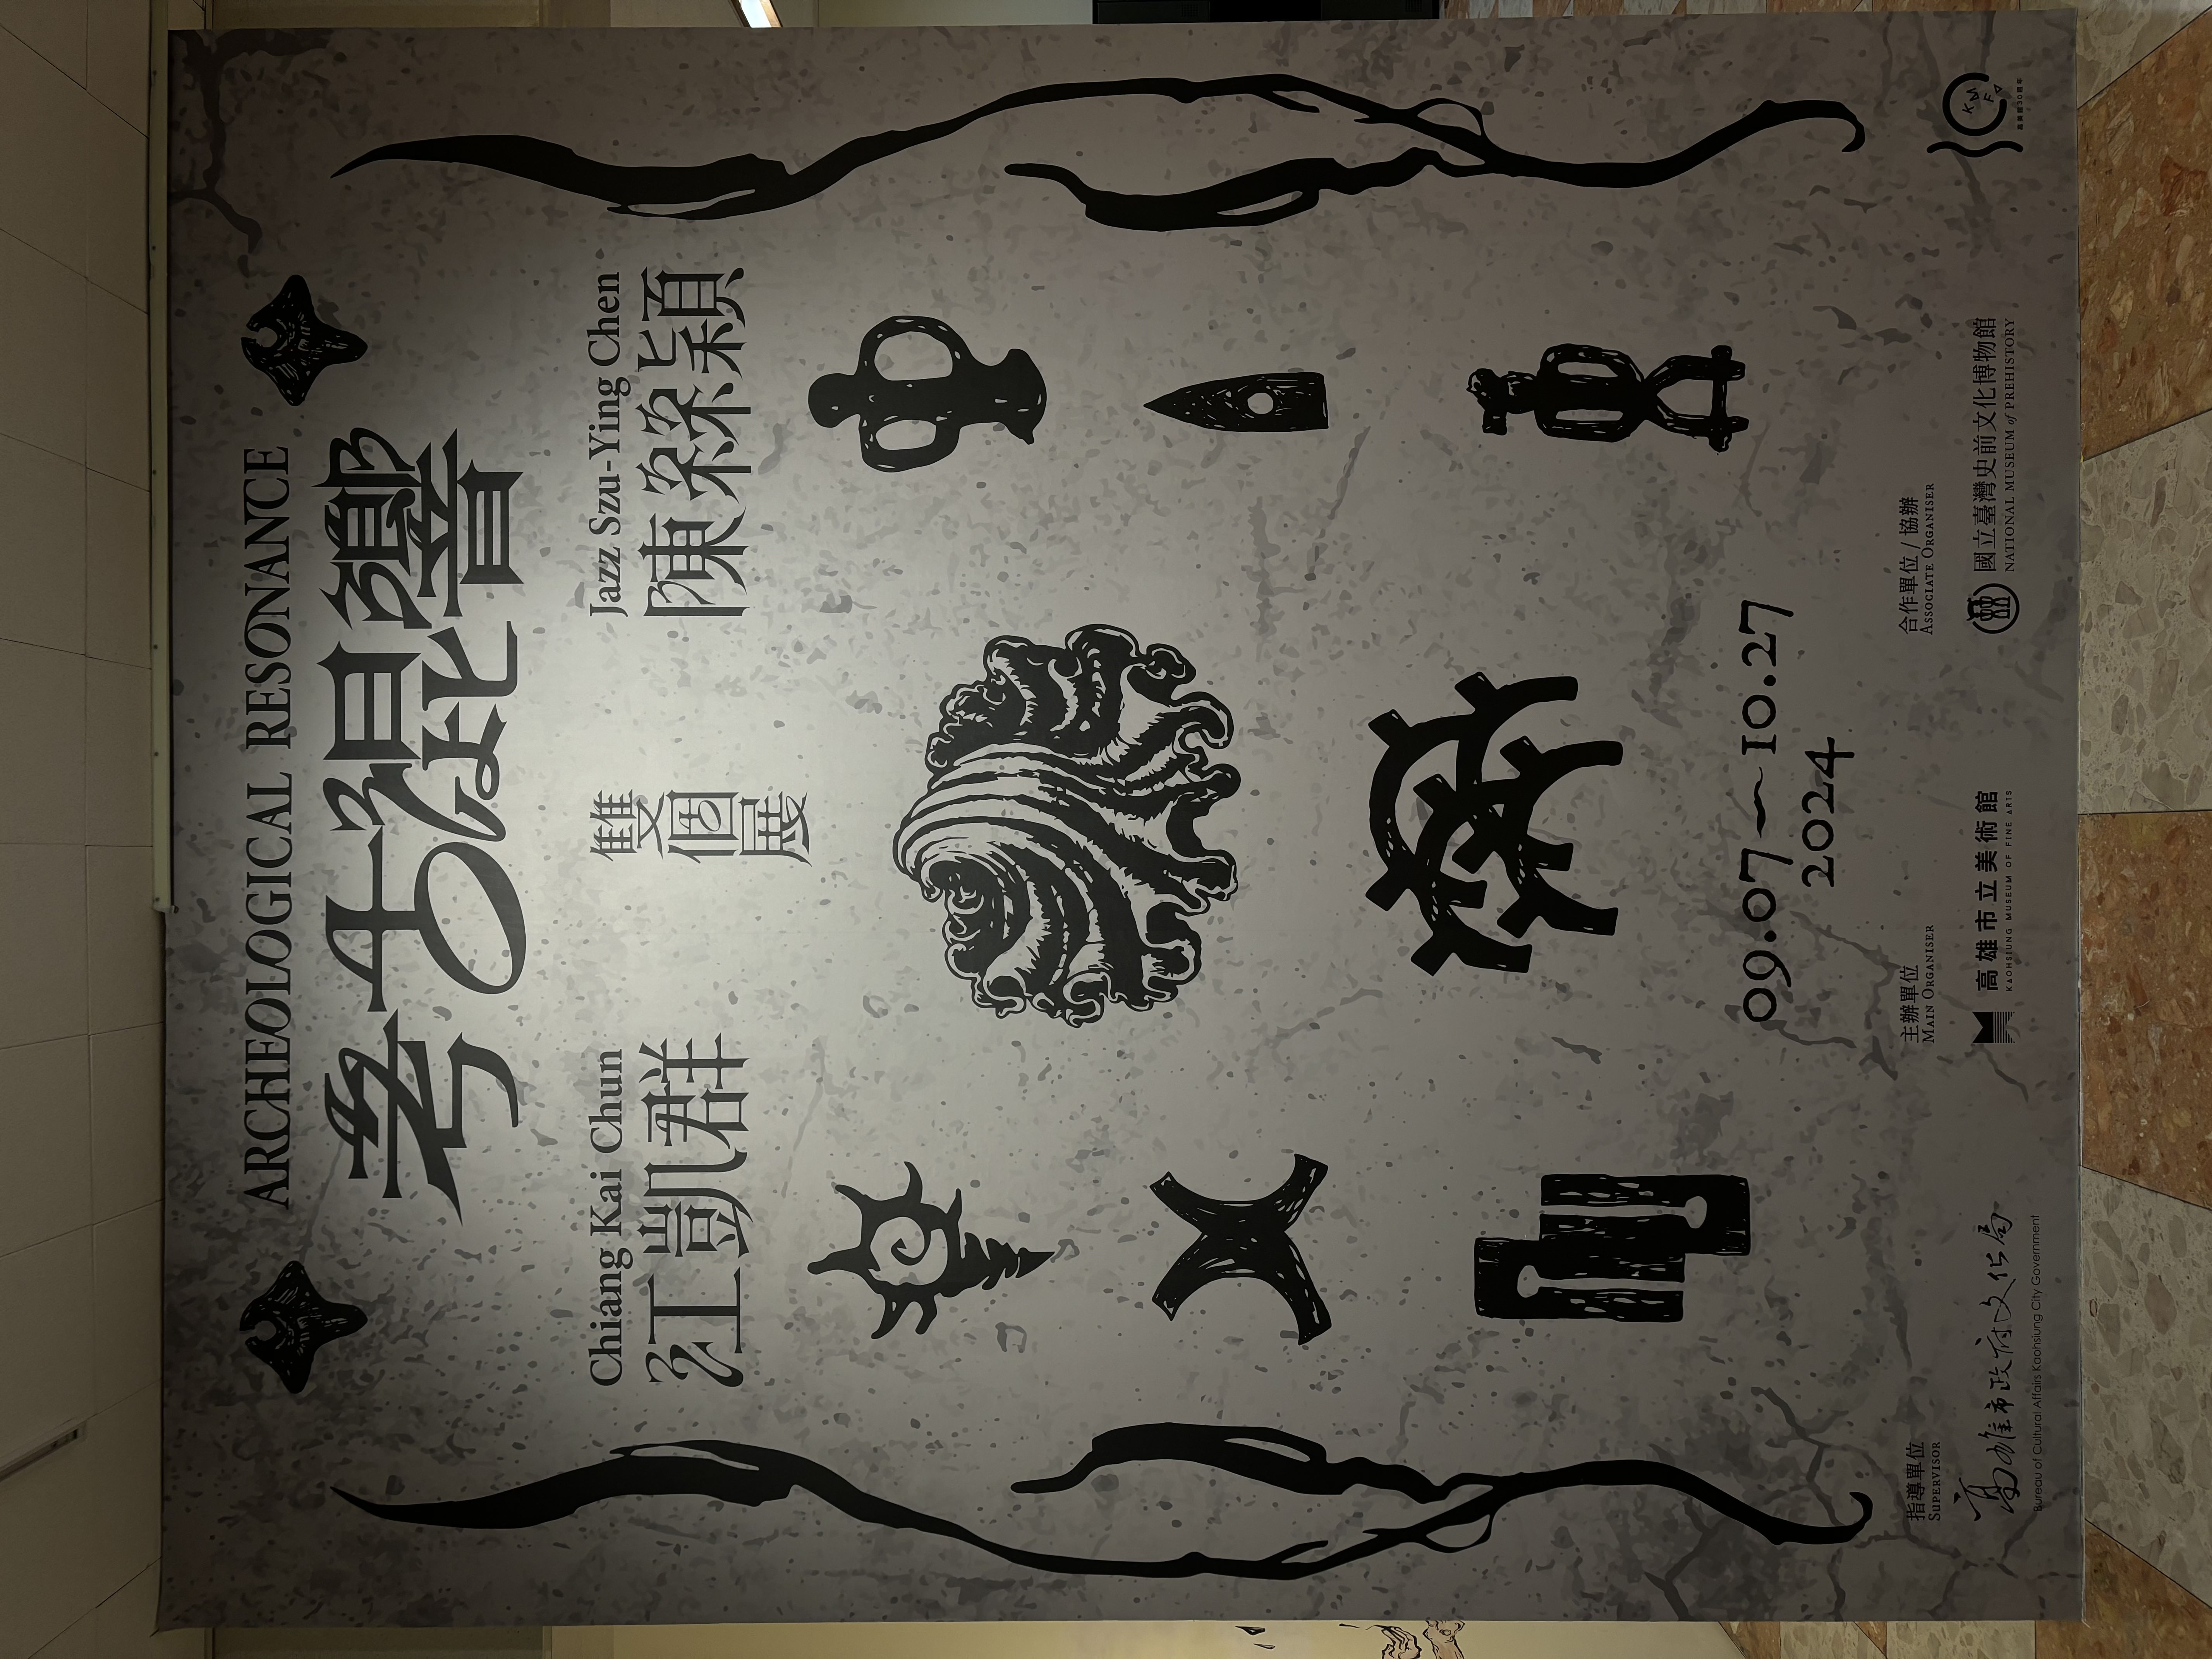 ARCHEOLOGICAL RESONANCE
考古混響
Chiang Kai Chun
江凱群
雙個展
Jazz Szu-Ying Chen
陳絲穎
09.07~10.27
2024
指導單位
SUPERVISOR
高雄市政府文化局
Bureau of Cultural Affairs Kaohsiung City Government
主辦單位
MAIN ORGANISER
高雄市立美術館
KAOHSIUNG MUSEUM OF FINE ARTS
合作單位/協辦
ASSOCIATE ORGANISER
國立臺灣史前文化博物館
NATIONAL MUSEUM of PREHISTORY
KMFA
高美館30週年